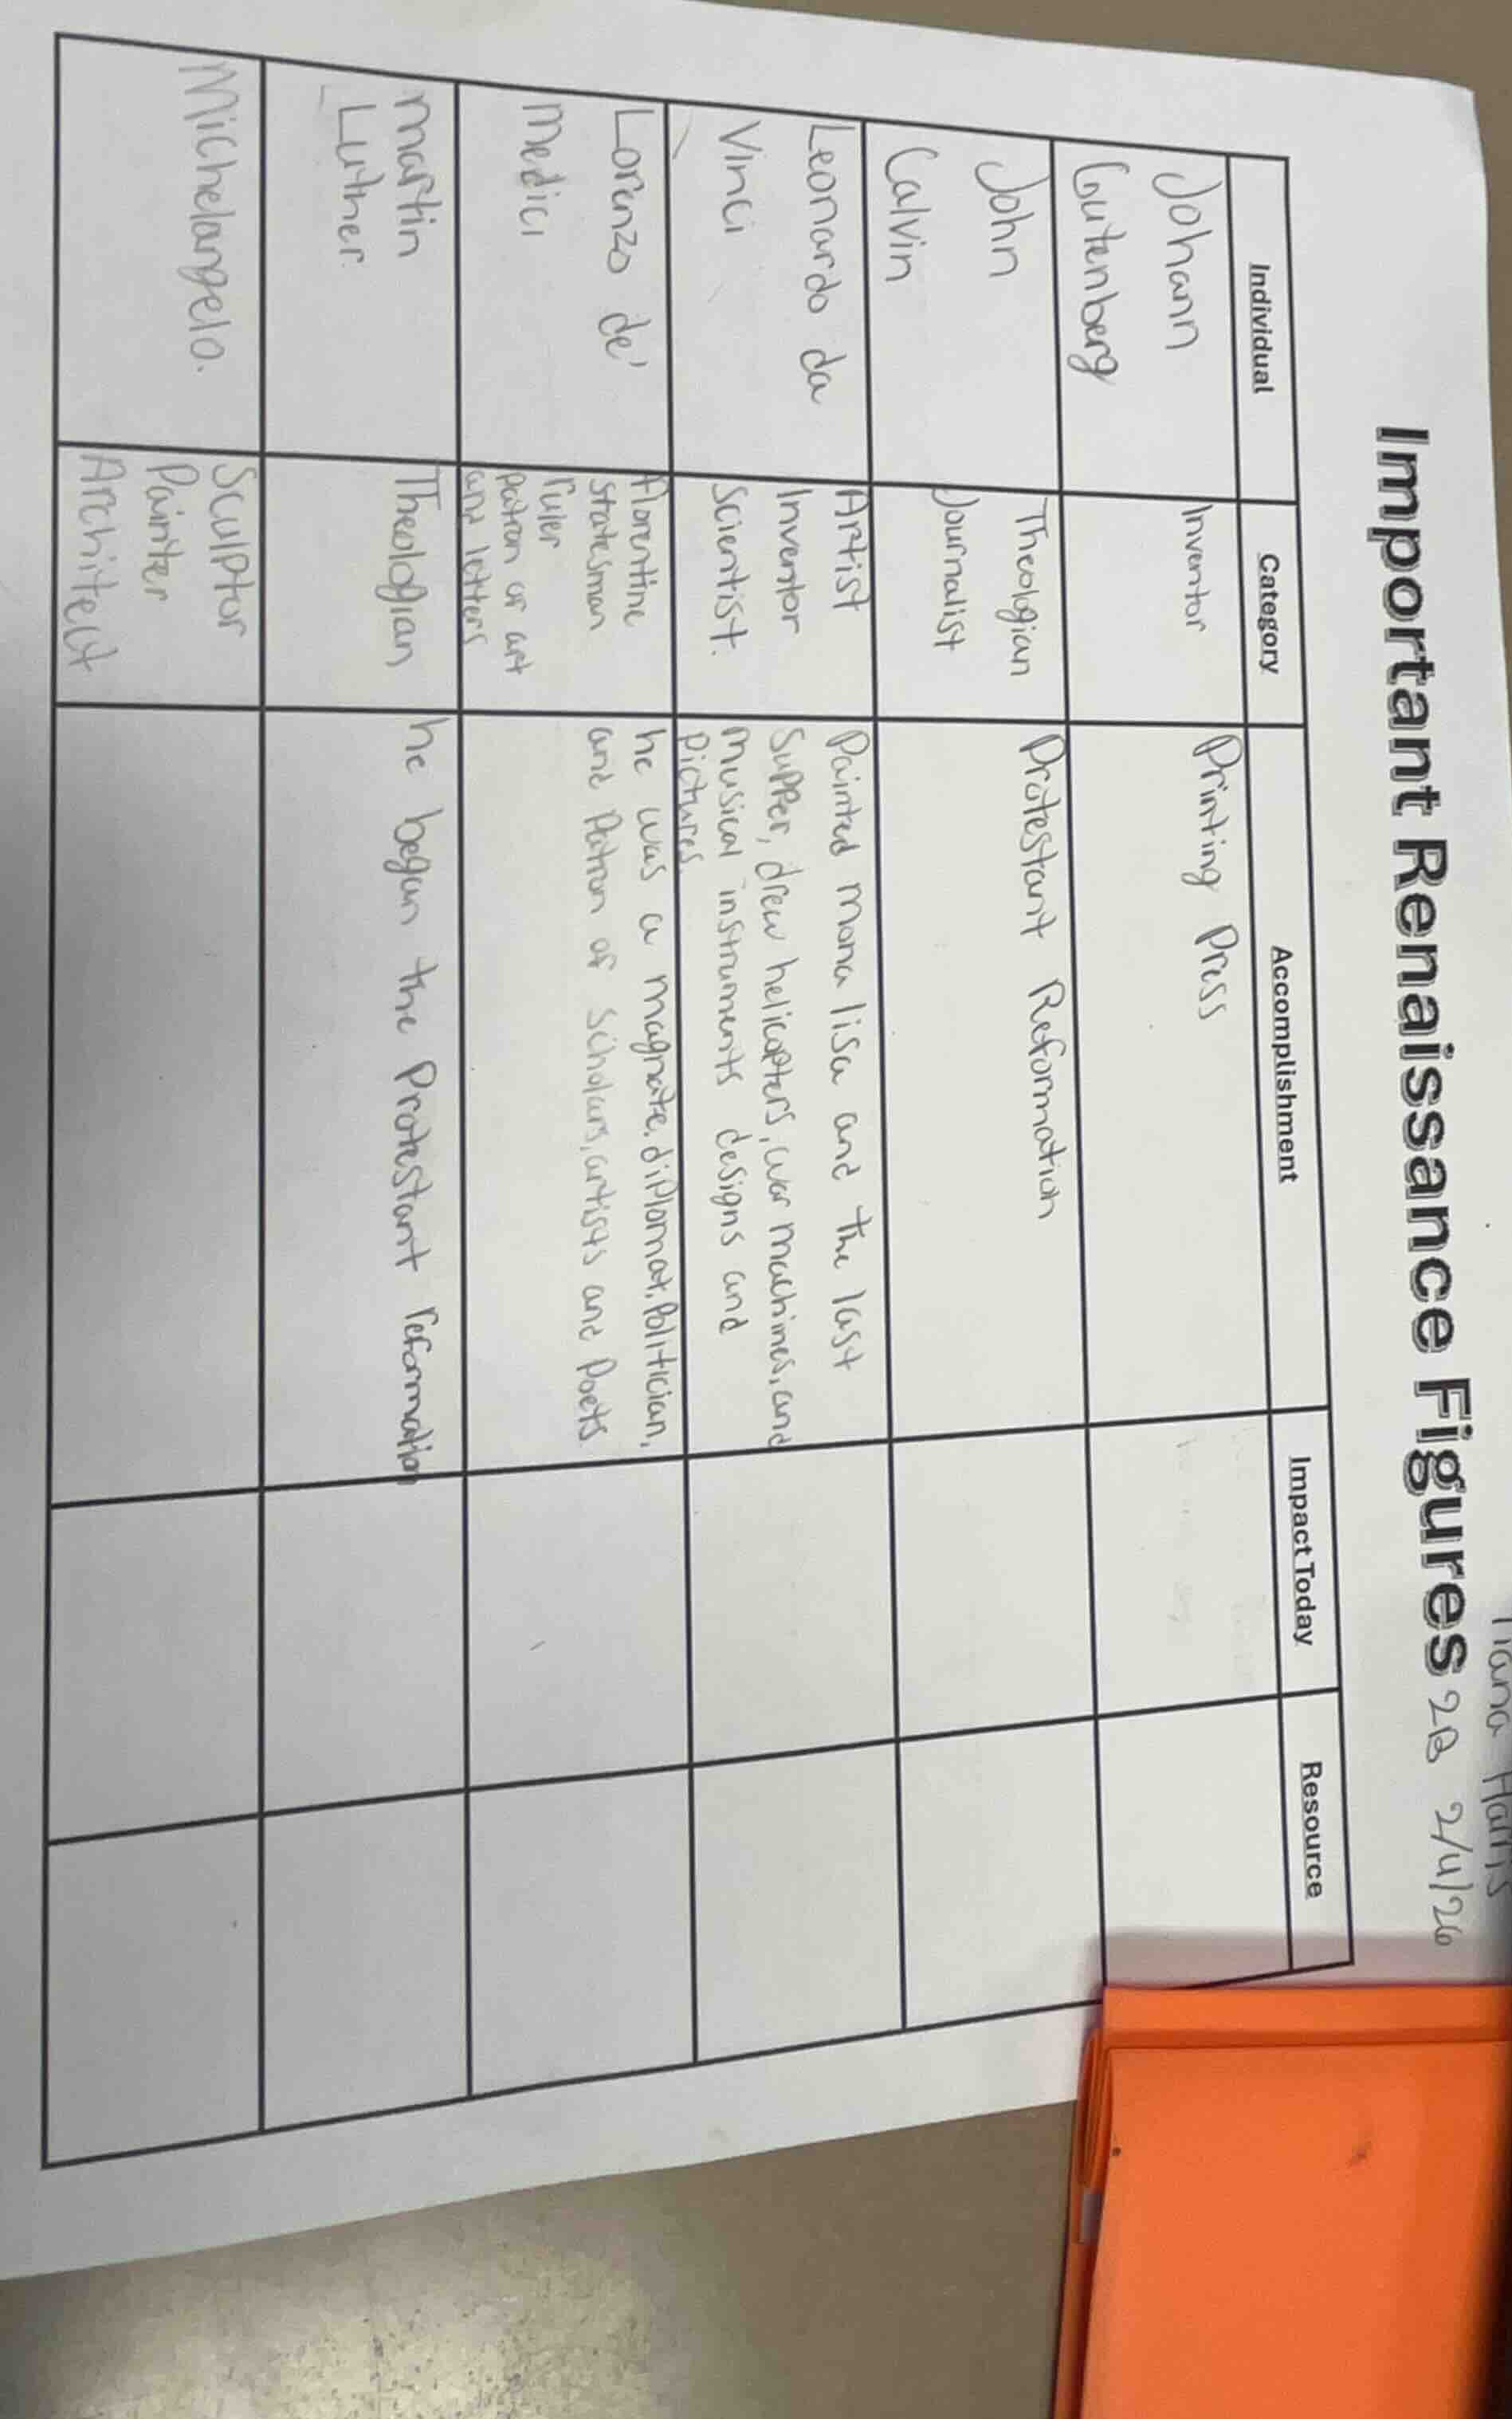 Harris
Important Renaissance Figures 2B 2/4/26
Individual
Category
Accomplishment
Impact Today
Resource
Johann
Gutenberg
Inventor
Printing Press
John
Calvin
Theologian
Journalist
Protestant Reformation
Leonardo da
Vinci
Artist
Inventor
Scientist.
Painted mona lisa and the last
supper, drew helicopters, war machines, and
musical instruments designs and
pictures.
Lorenzo de'
Medici
florentine
statesman
ruler
patron of art
and letters
he was a magnate, diplomat, politician,
and patron of scholars, artists and poets
martin
Luther.
Theologian
he began the Protestant reformation
Michelangelo.
Sculptor
Painter
Architect